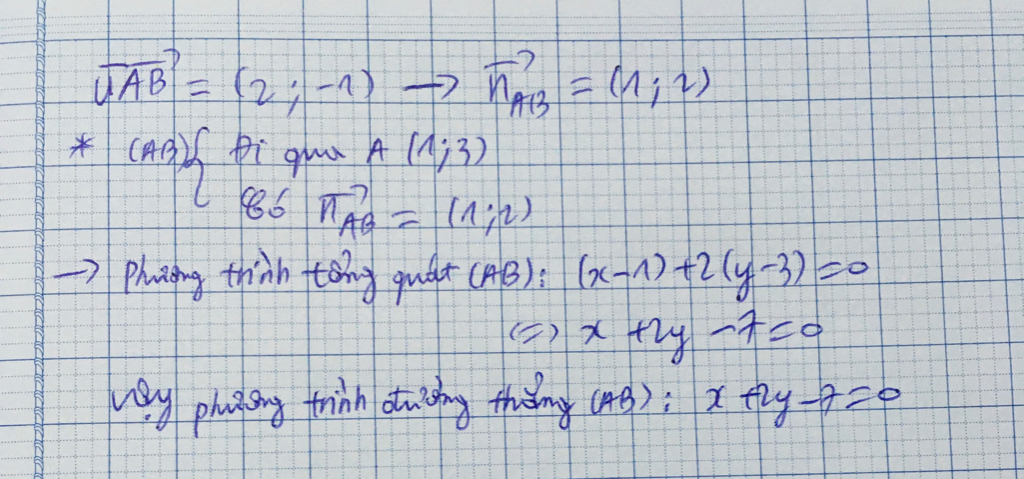 $\overrightarrow{u_{AB}} = (2 ; -1) \rightarrow \overrightarrow{n_{AB}} = (1 ; 2)$
* (AB) { Đi qua A (1;3)
Có $\overrightarrow{n_{AB}} = (1;2)$
→ Phương trình tổng quát (AB): (x-1)+2(y-3)=0
<=> x +2y -7=0
Vậy phương trình đường thẳng (AB): x +2y-7=0